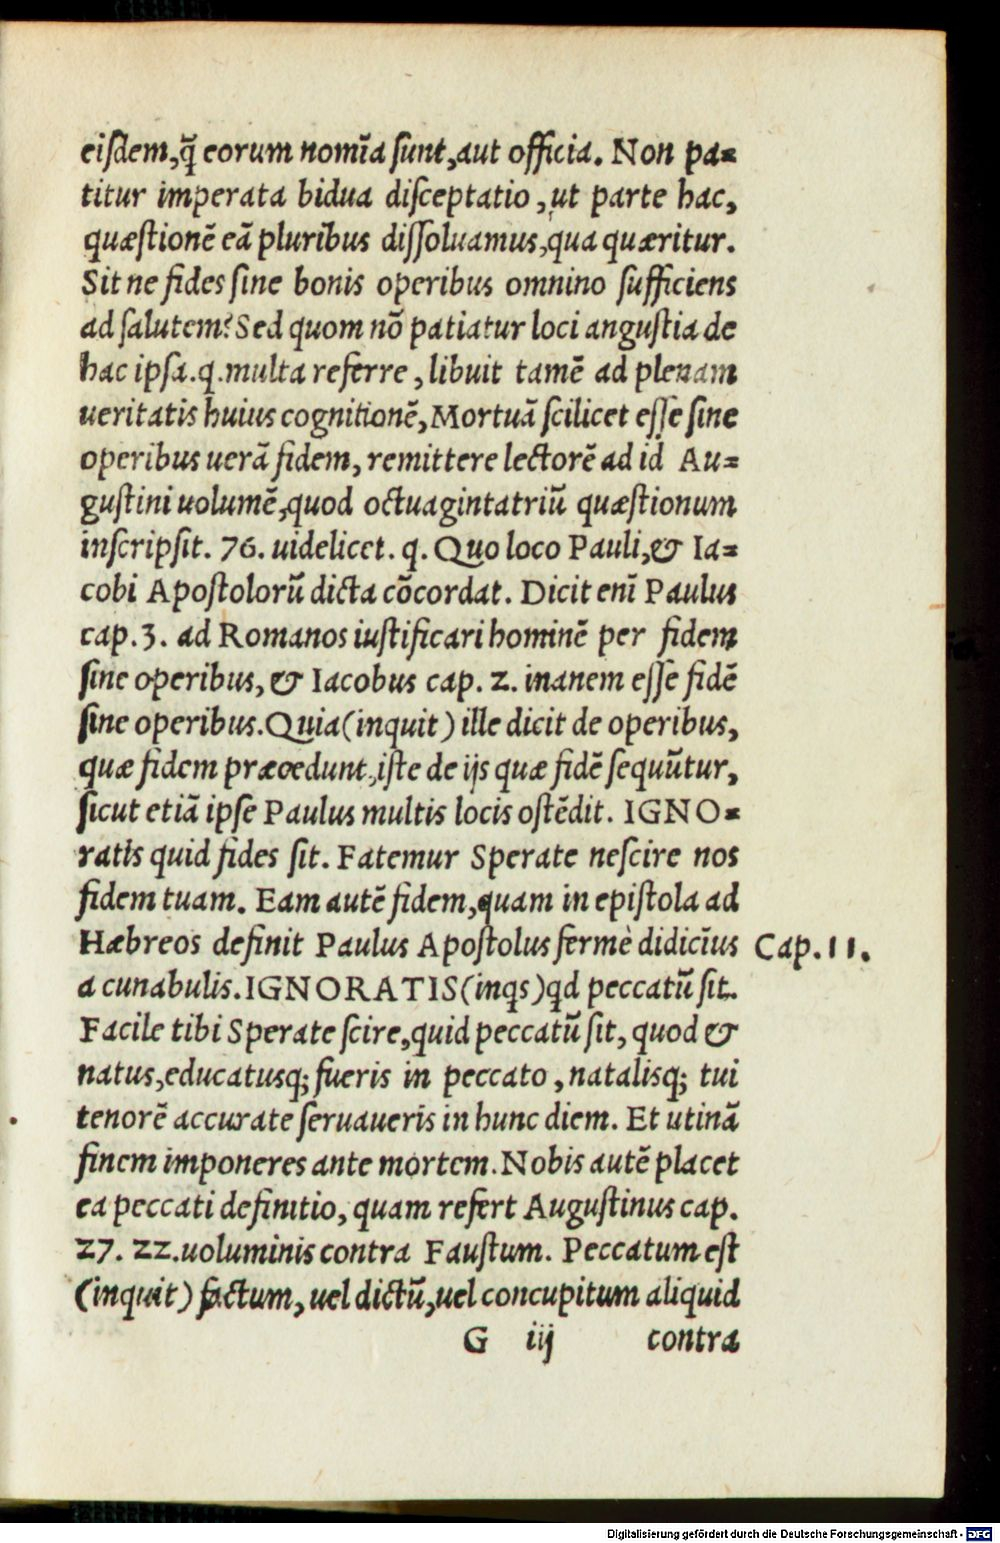 eiſdem, q̃ eorum nomĩa ſunt, aut officia. Non pa-
titur imperata bidua diſceptatio, ut parte hac,
quæſtionẽ eã pluribus diſſoluamus, qua quæritur.
Sit ne fides ſine bonis operibus omnino ſufficiens
ad ſalutem? Sed quom nõ patiatur loci anguſtia de
hac ipſa .q. multa referre, libuit tamẽ ad plenam
ueritatis huius cognitionẽ, Mortuã ſcilicet eſſe ſine
operibus uerã fidem, remittere lectorẽ ad id Au-
guſtini uolumẽ, quod octuagintatriũ quæſtionum
inſcripſit. 76. uidelicet. q. Quo loco Pauli, & Ia-
cobi Apoſtolorũ dicta cõcordat. Dicit enĩ Paulus
cap. 3. ad Romanos iuſtificari hominẽ per fidem
ſine operibus, & Iacobus cap. 2. inanem eſſe fidẽ
ſine operibus. Quia (inquit) ille dicit de operibus,
quæ fidem præcedunt, iſte de ijs quæ fidẽ ſequũtur,
ſicut etiã ipſe Paulus multis locis oſtẽdit. IGNO-
ratis quid fides ſit. Fatemur Sperate neſcire nos
fidem tuam. Eam autẽ fidem, quam in epiſtola ad
Hæbreos definit Paulus Apoſtolus fermè didicĩus Cap. 11.
a cunabulis. IGNORATIS (inqs) qd peccatũ ſit.
Facile tibi Sperate ſcire, quid peccatũ ſit, quod &
natus, educatusq; fueris in peccato, natalisq; tui
tenorẽ accurate ſeruaueris in hunc diem. Et utinã
finem imponeres ante mortem. Nobis autẽ placet
ea peccati definitio, quam refert Auguſtinus cap.
27. 22. uoluminis contra Fauſtum. Peccatum eſt
(inquit) factum, uel dictũ, uel concupitum aliquid
G iij contra
Digitalisierung gefördert durch die Deutsche Forschungsgemeinschaft - DFG